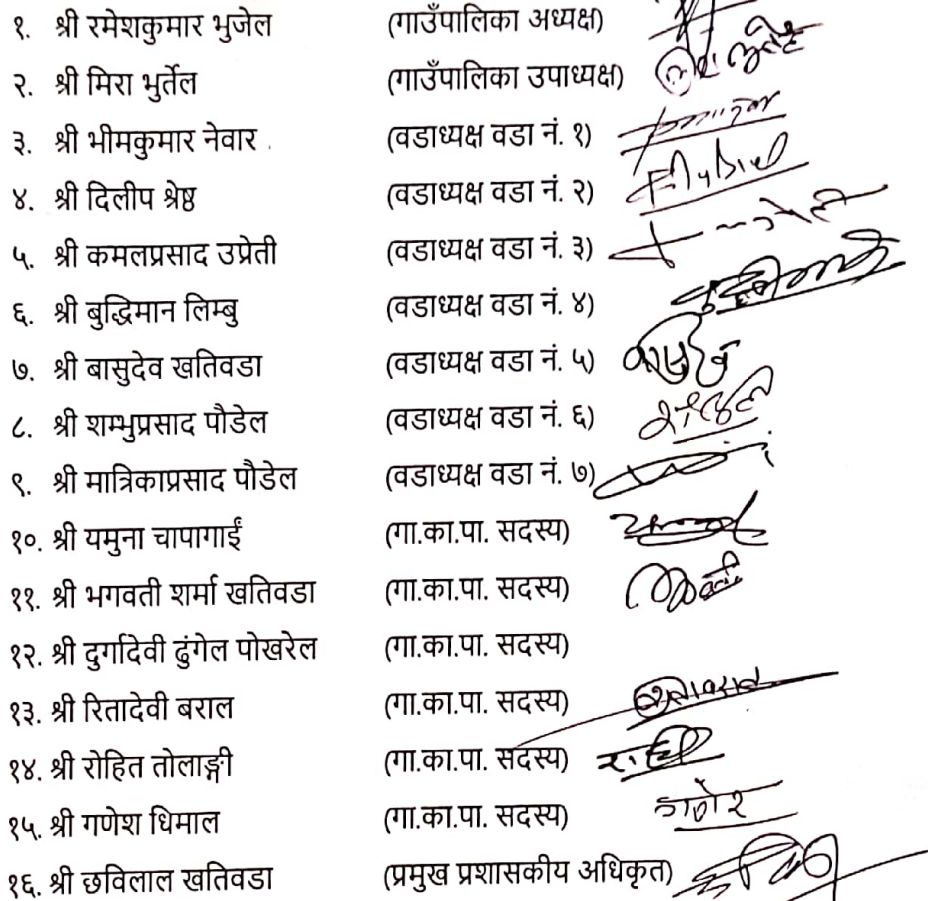 १. श्री रमेशकुमार भुजेल (गाउँपालिका अध्यक्ष)
२. श्री मिरा भुर्तेल (गाउँपालिका उपाध्यक्ष)
३. श्री भीमकुमार नेवार (वडाध्यक्ष वडा नं. १)
४. श्री दिलीप श्रेष्ठ (वडाध्यक्ष वडा नं. २)
५. श्री कमलप्रसाद उप्रेती (वडाध्यक्ष वडा नं. ३)
६. श्री बुद्धिमान लिम्बु (वडाध्यक्ष वडा नं. ४)
७. श्री बासुदेव खतिवडा (वडाध्यक्ष वडा नं. ५)
८. श्री शम्भुप्रसाद पौडेल (वडाध्यक्ष वडा नं. ६)
९. श्री मात्रिकाप्रसाद पौडेल (वडाध्यक्ष वडा नं. ७)
१०. श्री यमुना चापागाईं (गा.का.पा. सदस्य)
११. श्री भगवती शर्मा खतिवडा (गा.का.पा. सदस्य)
१२. श्री दुर्गादेवी ढुंगेल पोखरेल (गा.का.पा. सदस्य)
१३. श्री रितादेवी बराल (गा.का.पा. सदस्य)
१४. श्री रोहित तोलाङ्गी (गा.का.पा. सदस्य)
१५. श्री गणेश धिमाल (गा.का.पा. सदस्य) गणेश
१६. श्री छविलाल खतिवडा (प्रमुख प्रशासकीय अधिकृत)